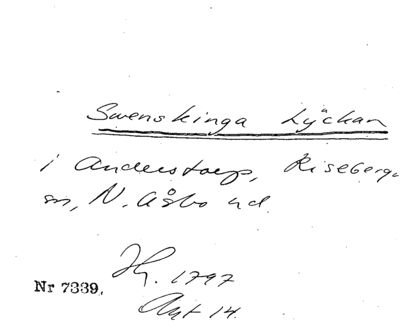 Swenskinga Lyckan
i Anderstorp, Riseberga
sn, N. Åsbo hd.
Hy. 1797
Nr 7339.
Akt 14.